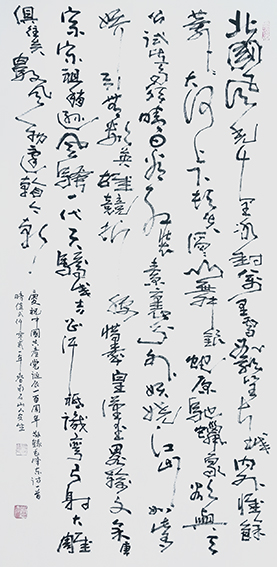 北國風光千里冰封萬里雪飄望長城內外惟餘
莽莽大河上下頓失滔滔山舞銀蛇原馳蠟象欲與天
公試比高須晴日看紅裝素裹分外妖嬈江山如此多
嬌引無數英雄競折腰惜秦皇漢武略輸文采唐
宗宋祖稍遜風騷一代天驕成吉思汗祗識彎弓射大雕
俱往矣數風流人物還看今朝
慶祝中國共產黨誕辰一百周年敬錄毛澤東詞一首